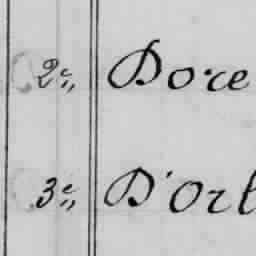 2e,, Dore
3e,, D'Orl